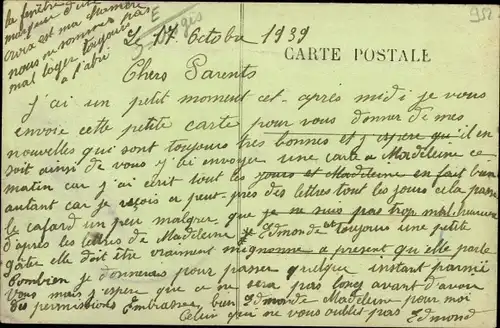 la fenêtre
maison d'
croix est ma
nous ne sommes pas
mal loger toujours
a l'abri
952
Le 17 Octobre 1939
CARTE POSTALE
Chers Parents
J'ai un petit moment cet après midi je vous
envoie cette petite carte pour vous donner de mes
nouvelles qui sont toujours très bonnes et j'espère qu'il en
soit ainsi de vous j'ai envoyer une carte a Madeleine ce
matin car j'ai écrit tout les jours et Madeleine en fait bien
autant car je reçois a peut près des lettres tout les jours cela passe
le cafard un peu malgrer que je ne suis pas trop malheureux
d'après les lettres de Madeleine Edmonde est toujours une petite
gâtée elle doit être vraiment mignonne a présent qu'elle parle
Combien je donnerais pour passer quelque instant parmie
Vous mais j'espère que ce ne sera pas long avant d'avoir
des permissions Embrasser bien Edmonde Madeleine pour moi
Celui qui ne vous oublie pas Edmond